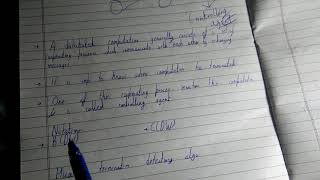 Controlling
agent
A distributed computation generally consists of a set of
cooperating processes which communicate with each other by exchanging
messages
It is imp to know when computation be terminated
One of the cooperating process monitor the computation
& is called controlling agent
Notation
B(DW) • C(DW)
termination detecting algo